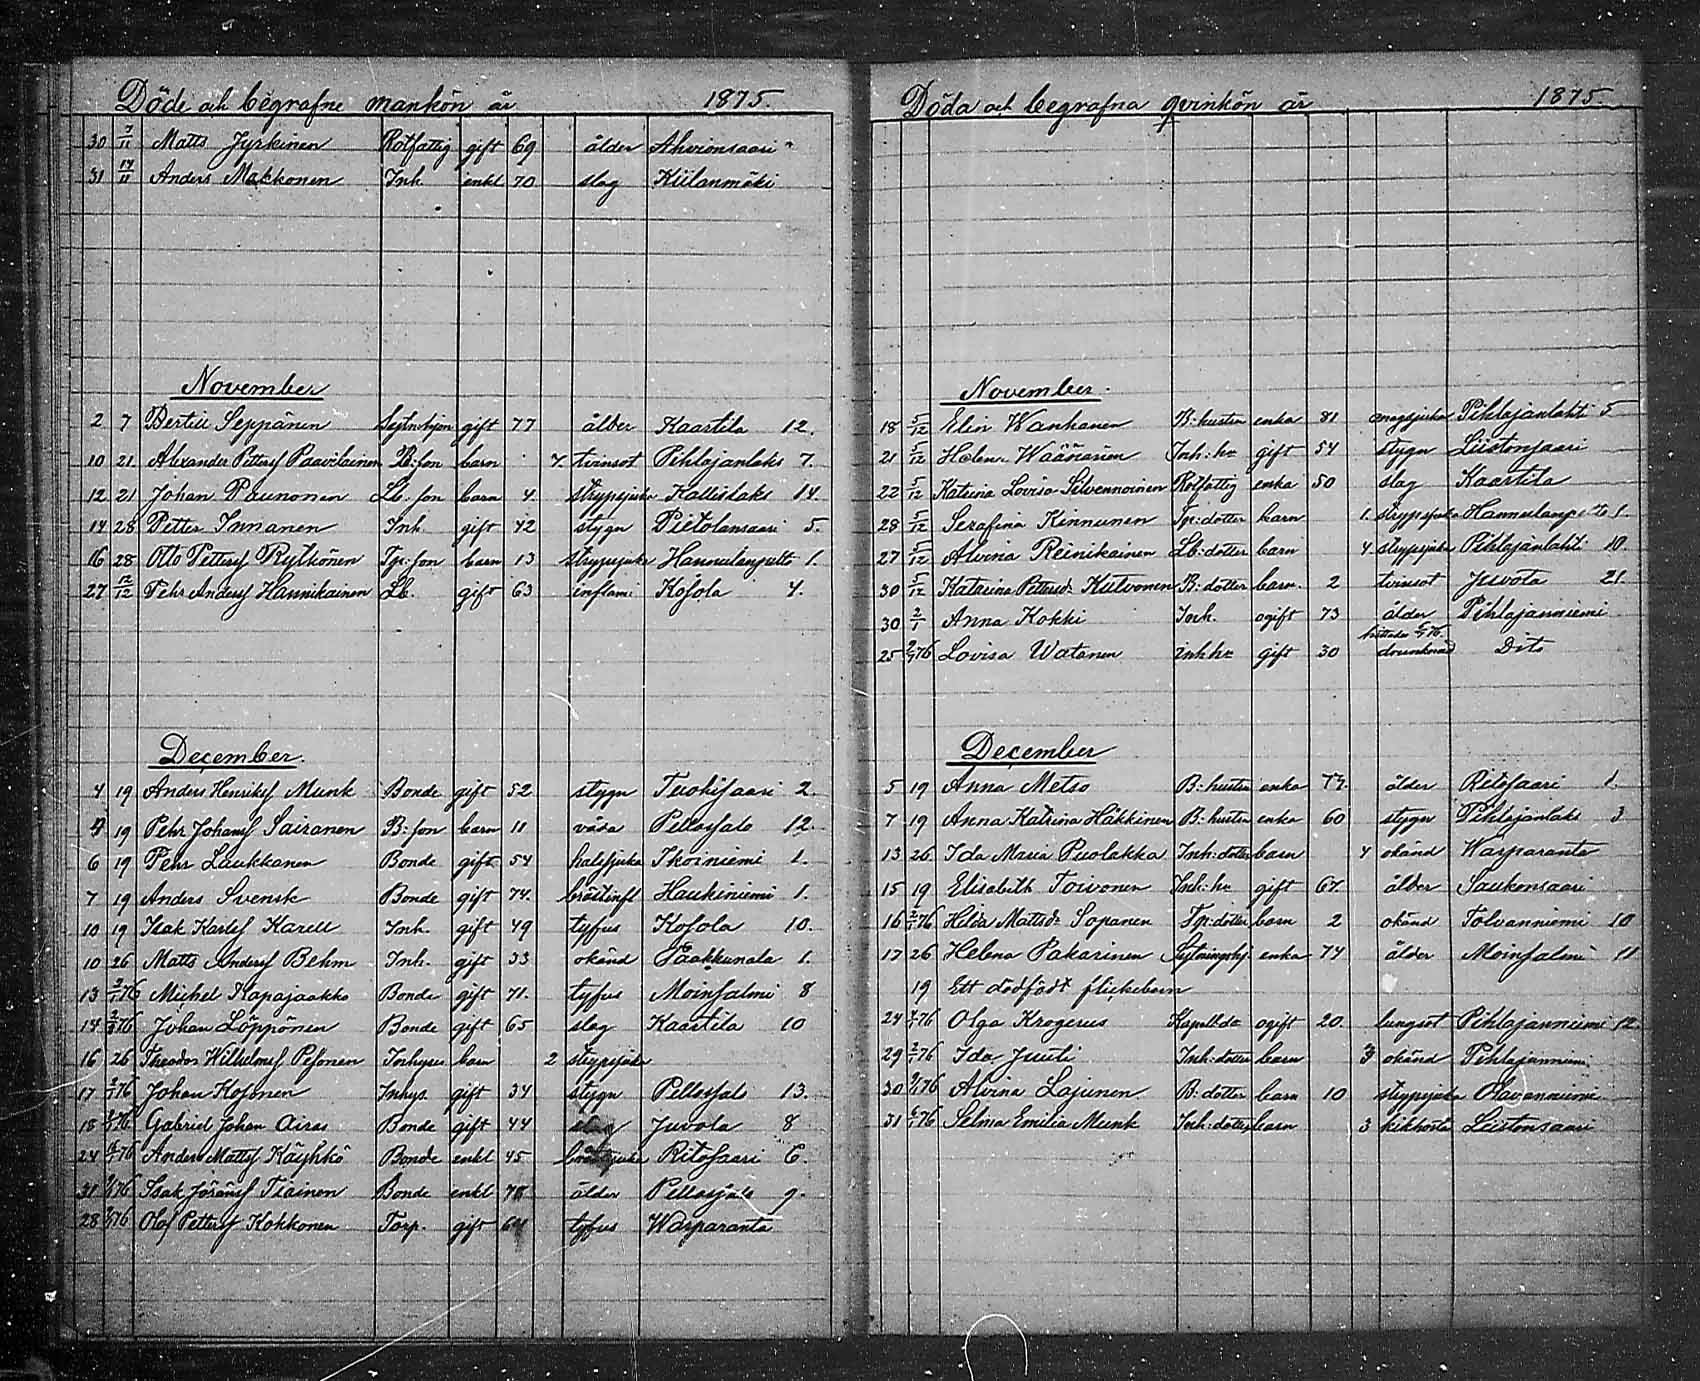 Döde och begrafne mankön år 1875.
30 7/11 Matts Jyrkinen Rotfattig gift 69 ålder Ahvionsaari
31 14/11 Anders Makkonen Inh. enkl 70 slag Kiilanmäki
November
2 7 Bertill Seppänen Sytnhjon gift 77 ålder Kaartila 12.
10 21 Alexander Petterss Paavilainen B:son barn 7. tvinsot Pihlajanlaks 7.
12 21 Johan Paunonen Lb. son barn 4. strypsjuka Kallislaks 14.
14 28 Petter Innanen Inh. gift 42 stygn Pietolansaari 5.
16 28 Otto Petterss Rytkönen Tp:son barn 13 strypsjuka Hannulanpelto 1.
27 12/12 Pehr Anderss Hannikainen Lb. gift 63 inflam: Kosola 4.
December.
4 19 Anders Henrikss Munk Bonde gift 52 stygn Tuohisaari 2.
19 Pehr Johanss Sairanen B:son barn 11 våda Pellossalo 12.
6 19 Pehr Laukkanen Bonde gift 54 halssjuka Ikoiniemi 1.
7 19 Anders Svensk Bonde gift 74. bröstinfl Haukiniemi 1.
10 19 Isak Karlss Karell Inh. gift 49 tyfus Kosola 10.
10 26 Matts Anderss Behm Inh. gift 33 okänd Säakkunala 1.
13 2/1 76 Michel Papajaakko Bonde gift 71. tyfus Moinsalmi 8
14 2/1 76 Johan Löppönen Bonde gift 65 slag Kaartila 10
16 26 Theodor Wilhelmss Pesonen Inhyses barn 2 strypsjuka
17 2/1 76 Johan Kosonen Inhys. gift 34 stygn Pellossalo 13.
18 76 Gabriel Johan Airas Bonde gift 44 slag Juvola 8
24 76 Anders Mattss Käyhkö Bonde enkl 45 bröstsjuka Ritosaari 6.
31 76 Isak Jöranss Tiainen Bonde enkl ålder Pellossalo 9.
28 76 Olof Petterss Kokkonen Torp. gift tyfus Warparanta
Döda och begrafna qvinkön år 1875.
November.
18 5/12 Elin Wanhanen B:hustru enka 81 magsjuka Pihlajanlahti 5
21 5/12 Helena Wäänänen Inh:hu gift 54 stygn Liistonsaari
22 5/12 Katrina Lovisa Silvennoinen Rotfattig enka 50 slag Kaartila
28 5/12 Serafina Kinnunen Tp:dotter barn 1. strypsjuka Hannulanpelto 1.
27 5/12 Alvina Reinikainen Lb:dotter barn 4 strypsjuka Pihlajanlahti 10.
30 5/12 Katarina Pettersdr Kutvonen B:dotter barn. 2 tvinsot Juvola 21.
30 2/1 Anna Kokki Inh. ogift 73 ålder Pihlajanniemi
25 76 Lovisa Watanen inh hu gift 30 drunknad Dito
December
5 19 Anna Metso B:hustru enka 77. ålder Ritosaari 1.
7 19 Anna Katrina Häkkinen B:hustru enka 60 stygn Pihlajanlaks 3
13 26 Ida Maria Puolakka Inh:dotter barn 4 okänd Warparanta
15 19 Elisabeth Toivonen Inh:hu gift 67. ålder Saukonsaari
16 2/1 76 Hilda Mattsdr Sopanen Tp:dotter barn 2 okänd Tolvanniemi 10
17 26 Helena Pakarinen Sytningshj enka 74 ålder Moinsalmi 11
19 Ett dödfödt flickebarn
24 2/1 76 Olga Krogerus Kapell:dr ogift 20. lungsot Pihlajanniemi 12.
29 2/1 76 Ida Juuti Inh:dotter barn 3 okänd Pihlajanniemi
30 76 Alvina Lajunen B:dotter barn 10 strypsjuka Olavanniemi
31 76 Selma Emilia Munk Inh:dotter barn 3 kikhosta Liistonsaari